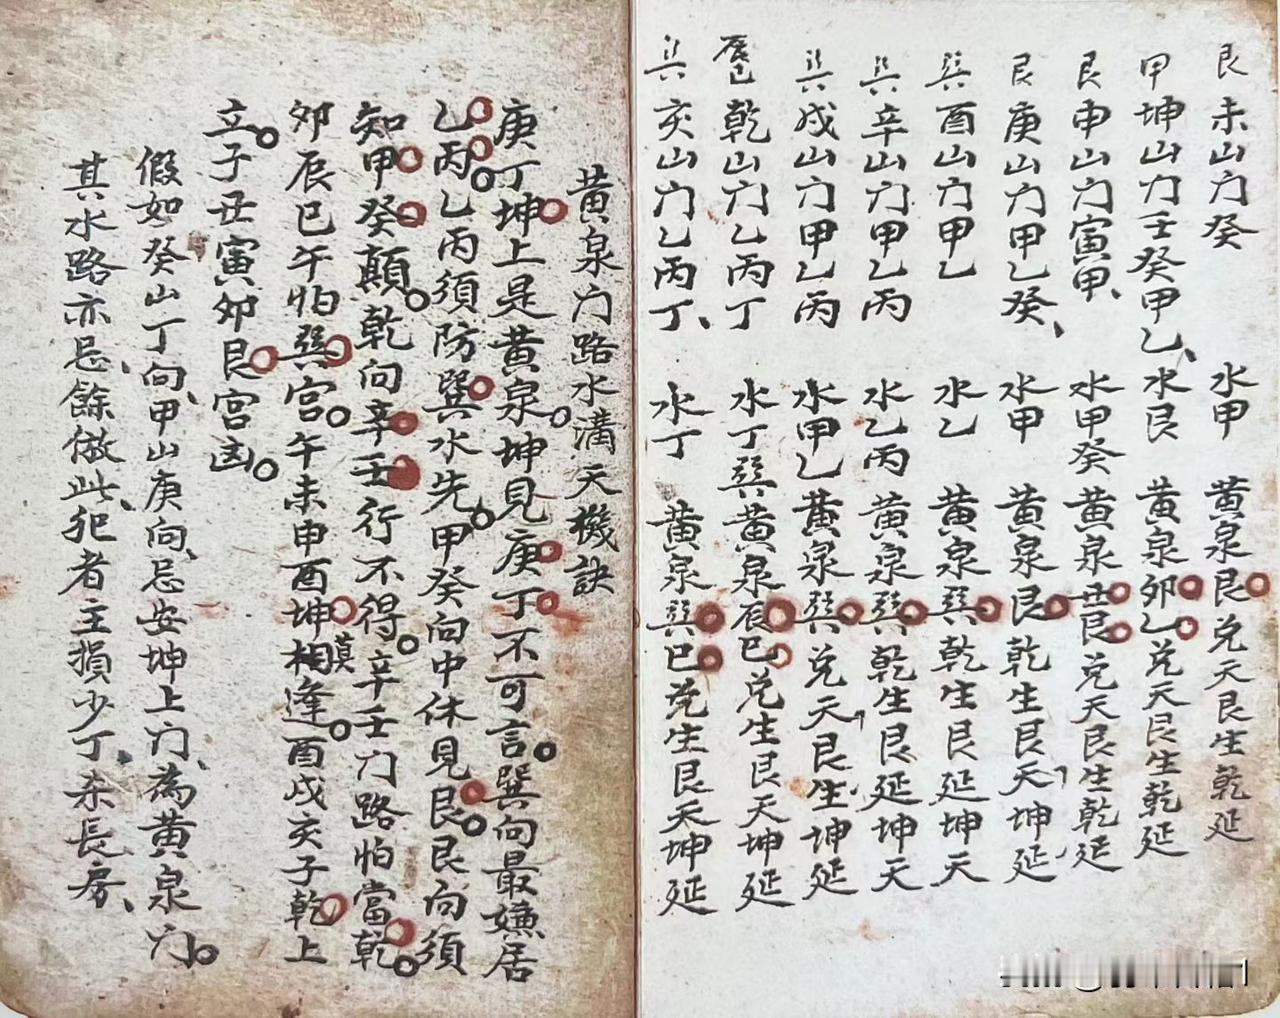 艮未山门癸 水甲 黄泉艮 兑天艮生乾延
甲坤山门壬癸甲乙、水艮 黄泉卯乙 兑天艮生乾延
艮申山门寅甲、水甲癸 黄泉丑艮 兑天艮生乾延
艮庚山门甲乙癸、水甲 黄泉艮 乾生艮天坤延
巽酉山门甲乙 水乙 黄泉巽 乾生艮延坤天
巽辛山门甲乙丙 水乙丙 黄泉巽 乾生艮延坤天
巽戌山门甲乙丙 水甲乙 黄泉巽 兑天艮生坤延
乾山门乙丙丁 水丁巽 黄泉辰巳 兑生艮天坤延
巽亥山门乙丙丁、水丁 黄泉巽巳 兑生艮天坤延
黄泉门路水溝天機訣
庚丁坤上是黄泉。坤見庚丁不可言。巽向最嫌居
乙丙。乙丙須防巽水先。甲癸向中休見艮。艮向須
知甲癸顛。乾向辛壬行不得。辛壬门路怕當乾。
卯辰巳午怕巽宫。午未申酉坤莫相逢。酉戌亥子乾上
立。子丑寅卯艮宫凶。
假如癸山丁向、甲山庚向、忌安坤上门、為黄泉门。
其水路亦忌、餘倣此、犯者主損少丁、杀長房、